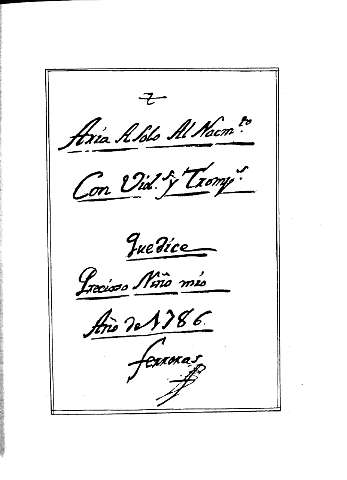 Aria A Solo Al Nacm.to
Con Viol.s y Tromp.s
que dice
Precioso Niño mio
Año de 1786.
Ferreras